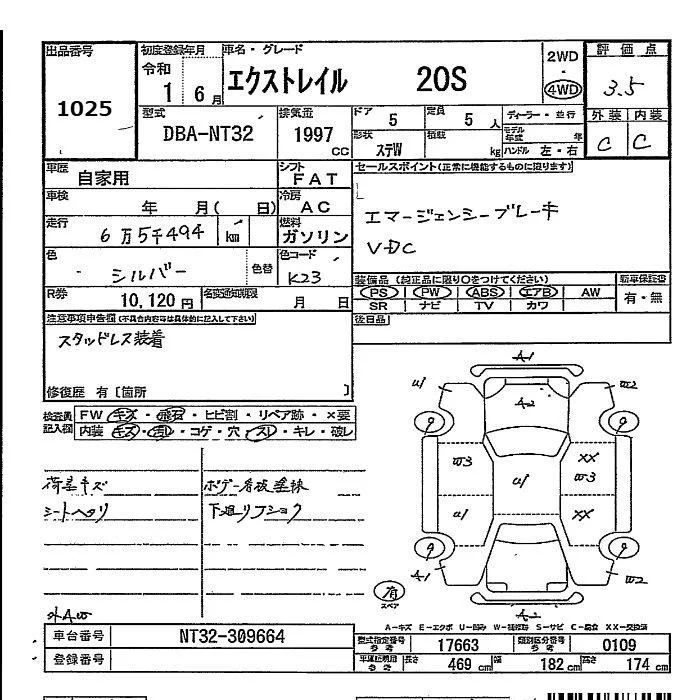 出品番号
1025
初度登録年月
令和 1 6 月
車名・グレード
エクストレイル 20S
2WD
・
4WD
評価点
3.5
外装 内装
C C
型式
DBA-NT32
排気量
1997 CC
ドア
5
定員
5 人
形状
ステW
積載
kg
ディーラー・並行
モデル年式 年
ハンドル 左・右
車歴
自家用
シフト
FAT
車検
年 月( 日)
冷房
AC
走行
6万5千494 km
燃料
ガソリン
色
シルバー
色替
色コード
K23
R券
10,120 円
名変通知期限
月 日
セールスポイント(正常に機能するものに限ります)
エマージェンシーブレーキ
VDC
装備品 (純正品に限り○をつけてください)
PS PW ABS エアB AW
SR ナビ TV カワ
新車保証書
有・無
後日品
注意事項申告欄(不具合内容等は具体的に記入して下さい)
スタッドレス装着
修復歴 有〔箇所 〕
検査員記入欄
FW キズ・飛石・ヒビ割・リペア跡・×要
内装 キズ・汚レ・コゲ・穴・スレ・キレ・破レ
荷室キズ
シートヘタリ
ボデー看板塗抹
下廻りフショク
A1
A2
U1
W2
W3
XX
W3
U1
U1
XX
A1
W2
A2
有
スペア
A-キズ E-エクボ U-凹み W-補修跡 S-サビ C-腐食 XX-交換済
車台番号
NT32-309664
登録番号
型式指定番号 参考
17663
類別区分番号 参考
0109
車検証明用 参考
長さ 469 cm
幅 182 cm
高さ 174 cm